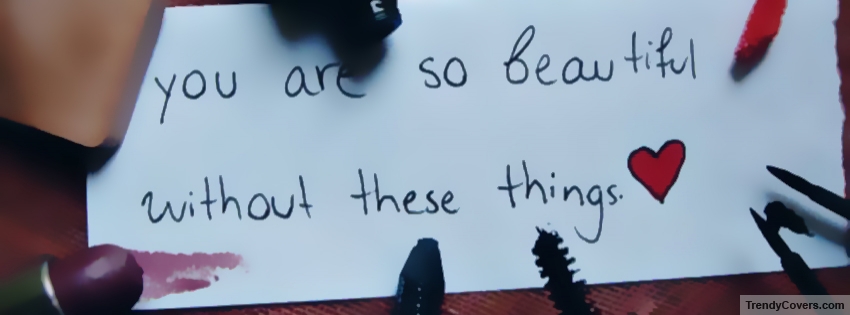 you are so beautiful
without these things.
TrendyCovers.com